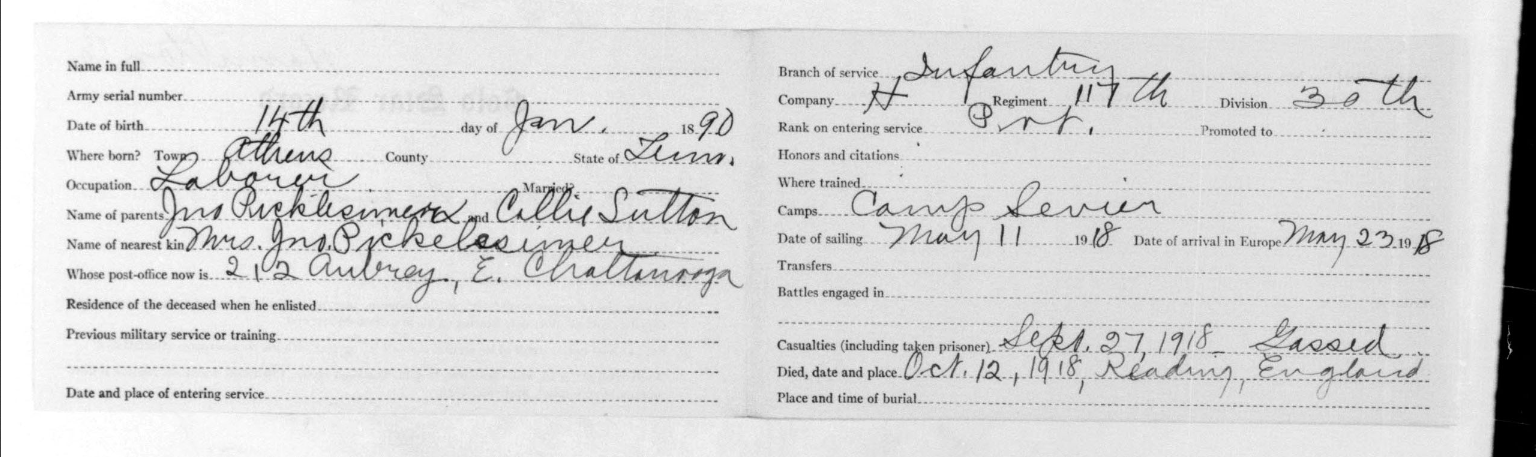 Name in full
Army serial number
Date of birth 14th day of Jan. 1890
Where born? Town Athens County State of Tenn.
Occupation Laborer Married?
Name of parents Jno Picklesimer and Collie Sutton
Name of nearest kin Mrs. Jno. Pickelesimer
Whose post-office now is 212 Aubrey, E. Chattanooga
Residence of the deceased when he enlisted
Previous military service or training
Date and place of entering service
Branch of service Infantry
Company H Regiment 117th Division 30th
Rank on entering service Pvt. Promoted to
Honors and citations
Where trained
Camps Camp Sevier
Date of sailing May 11 1918 Date of arrival in Europe May 23 1918
Transfers
Battles engaged in
Casualties (including taken prisoner) Sept. 27, 1918 Gassed
Died, date and place Oct. 12, 1918, Reading, England
Place and time of burial